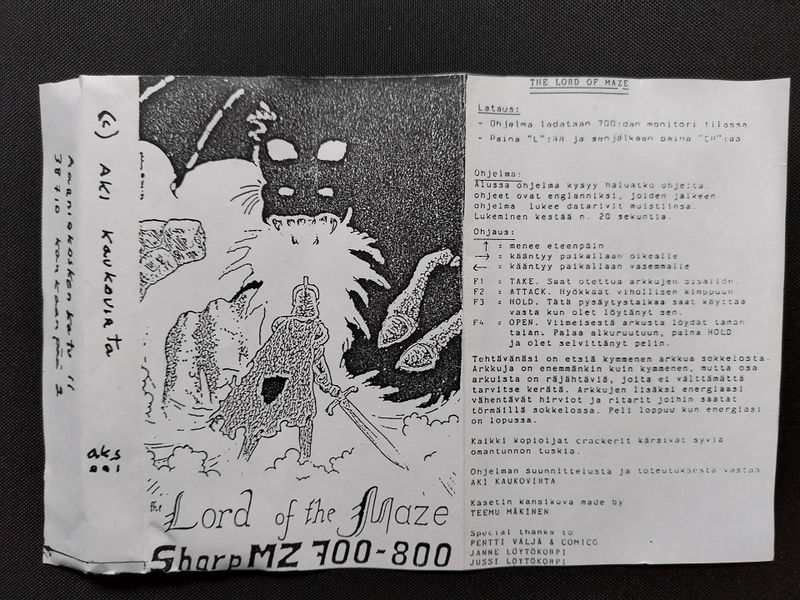 Aarniokosken katu 11
38710 Kankaanpää 2
(c) AKI KAUKOVIRTA
aks
001
the Lord of the Maze
Sharp MZ 700-800
THE LORD OF MAZE
Lataus:
- Ohjelma ladataan 700:dan monitori tilassa
- Paina "L":ää ja senjälkeen paina "CR":ää
Ohjelma:
Alussa ohjelma kysyy haluatko ohjeita.
ohjeet ovat englanniksi, joiden jälkeen
ohjelma lukee datarivit muistiinsa.
Lukeminen kestää n. 20 sekuntia.
Ohjaus:
↑ = menee eteenpäin
→ = kääntyy paikallaan oikealle
← = kääntyy paikallaan vasemmalle
F1 = TAKE. Saat otettua arkkujen sisällön.
F2 = ATTACK. Hyökkäät vihollisen kimppuun.
F3 = HOLD. Tätä pysäytystaikaa saat käyttää
vasta kun olet löytänyt sen.
F4 = OPEN. Viimeisestä arkusta löydät tämän
taian. Palaa alkuruutuun, paina HOLD
ja olet selvittänyt pelin.
Tehtävänäsi on etsiä kymmenen arkkua sokkelosta.
Arkkuja on enemmänkin kuin kymmenen, mutta osa
arkuista on räjähtäviä, joita ei välttämättä
tarvitse kerätä. Arkkujen lisäksi energiaasi
vähentävät hirviot ja ritarit joihin saatat
törmäillä sokkelossa. Peli loppuu kun energiasi
on lopussa.
Kaikki kopioijat crackerit kärsivät syviä
omantunnon tuskia.
Ohjelman suunnittelusta ja toteutuksesta vastaa
AKI KAUKOVIRTA
Kasetin kansikuva made by
TEEMU MÄKINEN
Special thanks to
PENTTI VÄLJÄ & COMICO
JANNE LÖYTÖKORPI
JUSSI LÖYTÖKORPI